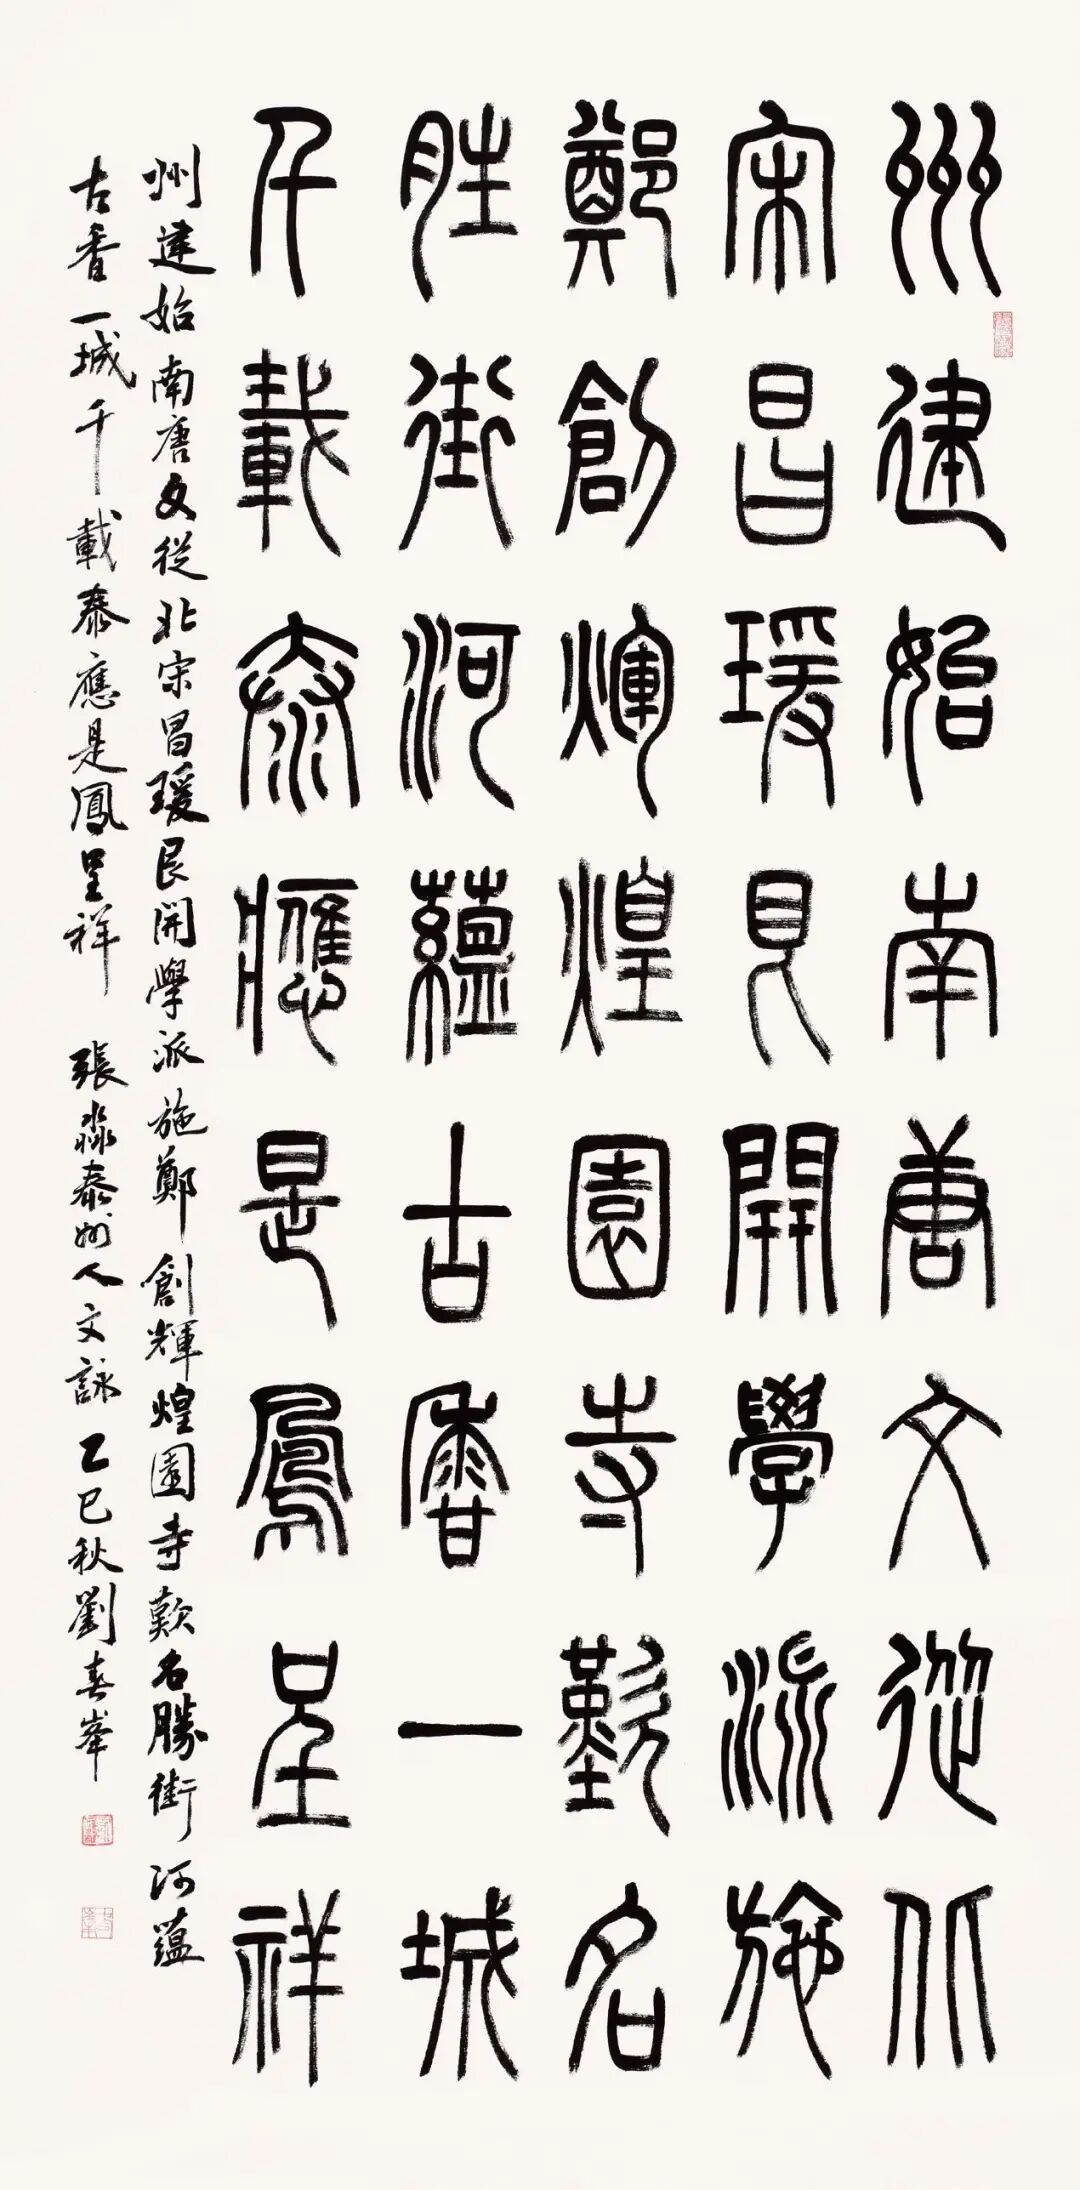 州建始南唐文從北
宋昌瑗艮開學派施
鄭創煇煌園寺歎名
胜街河蘊古香一城
千載泰應是鳳呈祥
州建始南唐文從北宋昌瑗艮開學派施鄭創輝煌園寺歎名勝街河蘊
古香一城千載泰應是鳳呈祥 張淼泰州人文詠 乙巳秋劉春峯